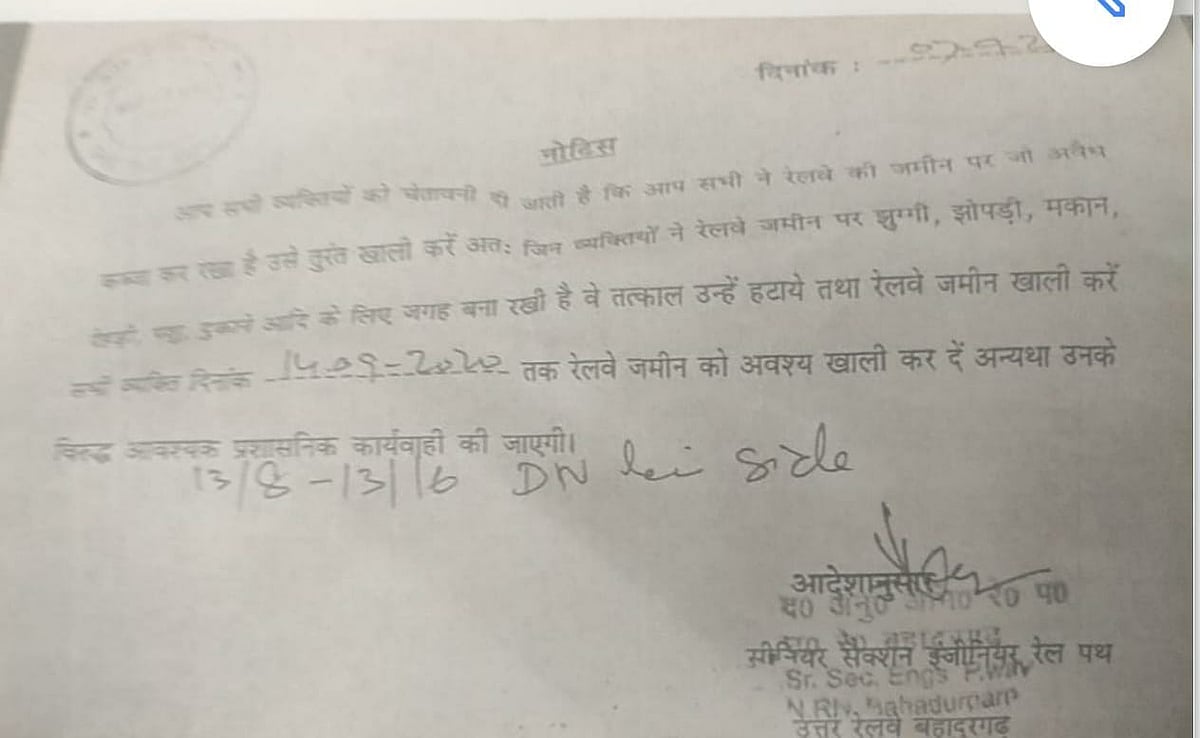 दिनांक :
नोटिस
आप सभी व्यक्तियों को चेतावनी दी जाती है कि आप सभी ने रेलवे की जमीन पर जो अवैध
कब्जा कर रखा है उसे तुरंत खाली करें अतः जिन व्यक्तियों ने रेलवे जमीन पर झुग्गी, झोपड़ी, मकान,
दुकाने आदि के लिए जगह बना रखी है वे तत्काल उन्हें हटाये तथा रेलवे जमीन खाली करें
सभी व्यक्ति दिनांक 14-09-2020 तक रेलवे जमीन को अवश्य खाली कर दें अन्यथा उनके
विरुद्ध आवश्यक प्रशासनिक कार्यवाही की जाएगी।
13/8-13/16 DN side
आदेशानुसार
सीनियर सैक्शन इंजीनियर रेल पथ
Sr. Sec. Eng. P.Way
N Rly. Bahadurgarh
उत्तर रेलवे बहादुरगढ़